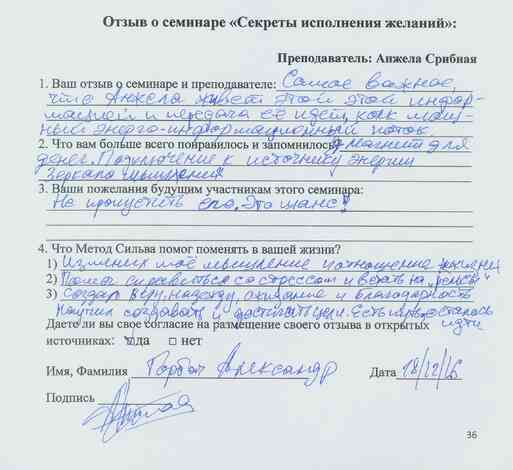 Отзыв о семинаре «Секреты исполнения желаний»:
Преподаватель: Анжела Срибная
1. Ваш отзыв о семинаре и преподавателе: Самое важное,
что Анжела живет этой этой инфор-
мацией и передача её идет, как мощ-
ный энерго-информационный поток.
2. Что вам больше всего понравилось и запомнилось? магнит для
денег. Подключение к источнику энергии
Зеркала
3. Ваши пожелания будущим участникам этого семинара:
Не пропустить его. Это шанс!
4. Что Метод Сильва помог поменять в вашей жизни?
1) Изменил моё мышление и отношение к жизни
2) Помог справиться со стрессом и встать на "рельсы"
3) Создал веру, надежду, ожидание и благодарность
Научил создавать и достигать цели. Есть путь, осталось
идти
Даете ли вы свое согласие на размещение своего отзыва в открытых
источниках: да □ нет
Имя, Фамилия Горбач Александр Дата 18/12/16
Подпись
36